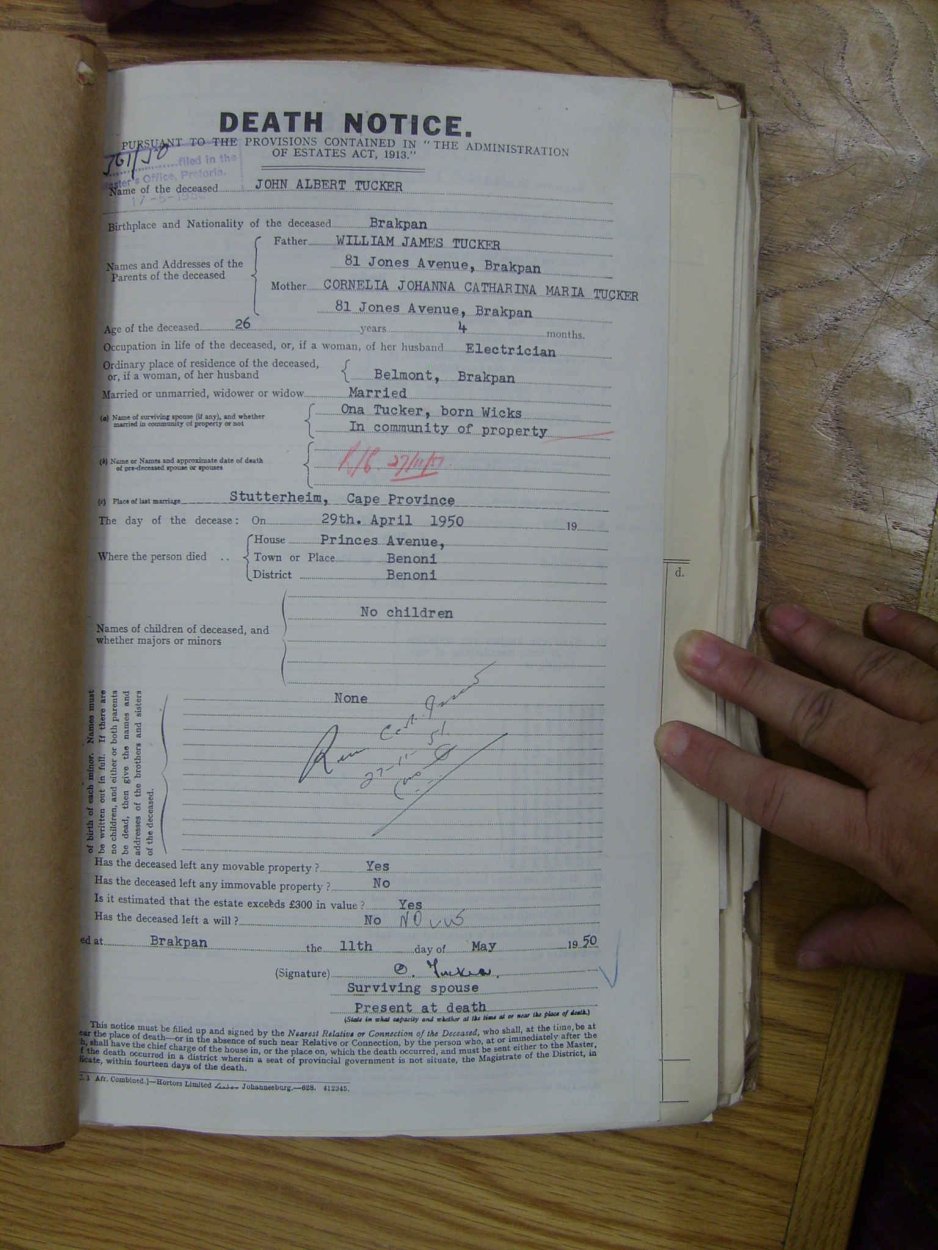 DEATH NOTICE.
PURSUANT TO THE PROVISIONS CONTAINED IN "THE ADMINISTRATION
OF ESTATES ACT, 1913."
filed in the
Office, Pretoria.
Name of the deceased JOHN ALBERT TUCKER
Birthplace and Nationality of the deceased Brakpan
Names and Addresses of the
Parents of the deceased
Father WILLIAM JAMES TUCKER
81 Jones Avenue, Brakpan
Mother CORNELIA JOHANNA CATHARINA MARIA TUCKER
81 Jones Avenue, Brakpan
Age of the deceased 26 years 4 months.
Occupation in life of the deceased, or, if a woman, of her husband Electrician
Ordinary place of residence of the deceased,
or, if a woman, of her husband
Belmont, Brakpan
Married or unmarried, widower or widow Married
(a) Name of surviving spouse (if any), and whether
married in community of property or not
Ona Tucker, born Wicks
In community of property
(b) Name or Names and approximate date of death
of pre-deceased spouse or spouses
(c) Place of last marriage Stutterheim, Cape Province
The day of the decease: On 29th. April 1950 19
Where the person died ..
House Princes Avenue,
Town or Place Benoni
District Benoni
d.
No children
Names of children of deceased, and
whether majors or minors
None
of birth of each minor. Names must
be written out in full. If there are
no children, and either or both parents
be dead, then give the names and
addresses of the brothers and sisters
of the deceased.
Has the deceased left any movable property? Yes
Has the deceased left any immovable property? No
Is it estimated that the estate exceeds £300 in value? Yes
Has the deceased left a will? No NO
ed at Brakpan the 11th day of May 1950
(Signature) O. Tucker.
Surviving spouse
Present at death
(State in what capacity and whether at the time at or near the place of death.)
This notice must be filled up and signed by the Nearest Relative or Connection of the Deceased, who shall, at the time, be at
ear the place of death—or in the absence of such near Relative or Connection, by the person who, at or immediately after the
h, shall have the chief charge of the house in, or the place on, which the death occurred, and must be sent either to the Master,
f the death occurred in a district wherein a seat of provincial government is not situate, the Magistrate of the District, in
licate, within fourteen days of the death.
Afr. Combined.]—Hortors Limited Johannesburg.—628. 412345.